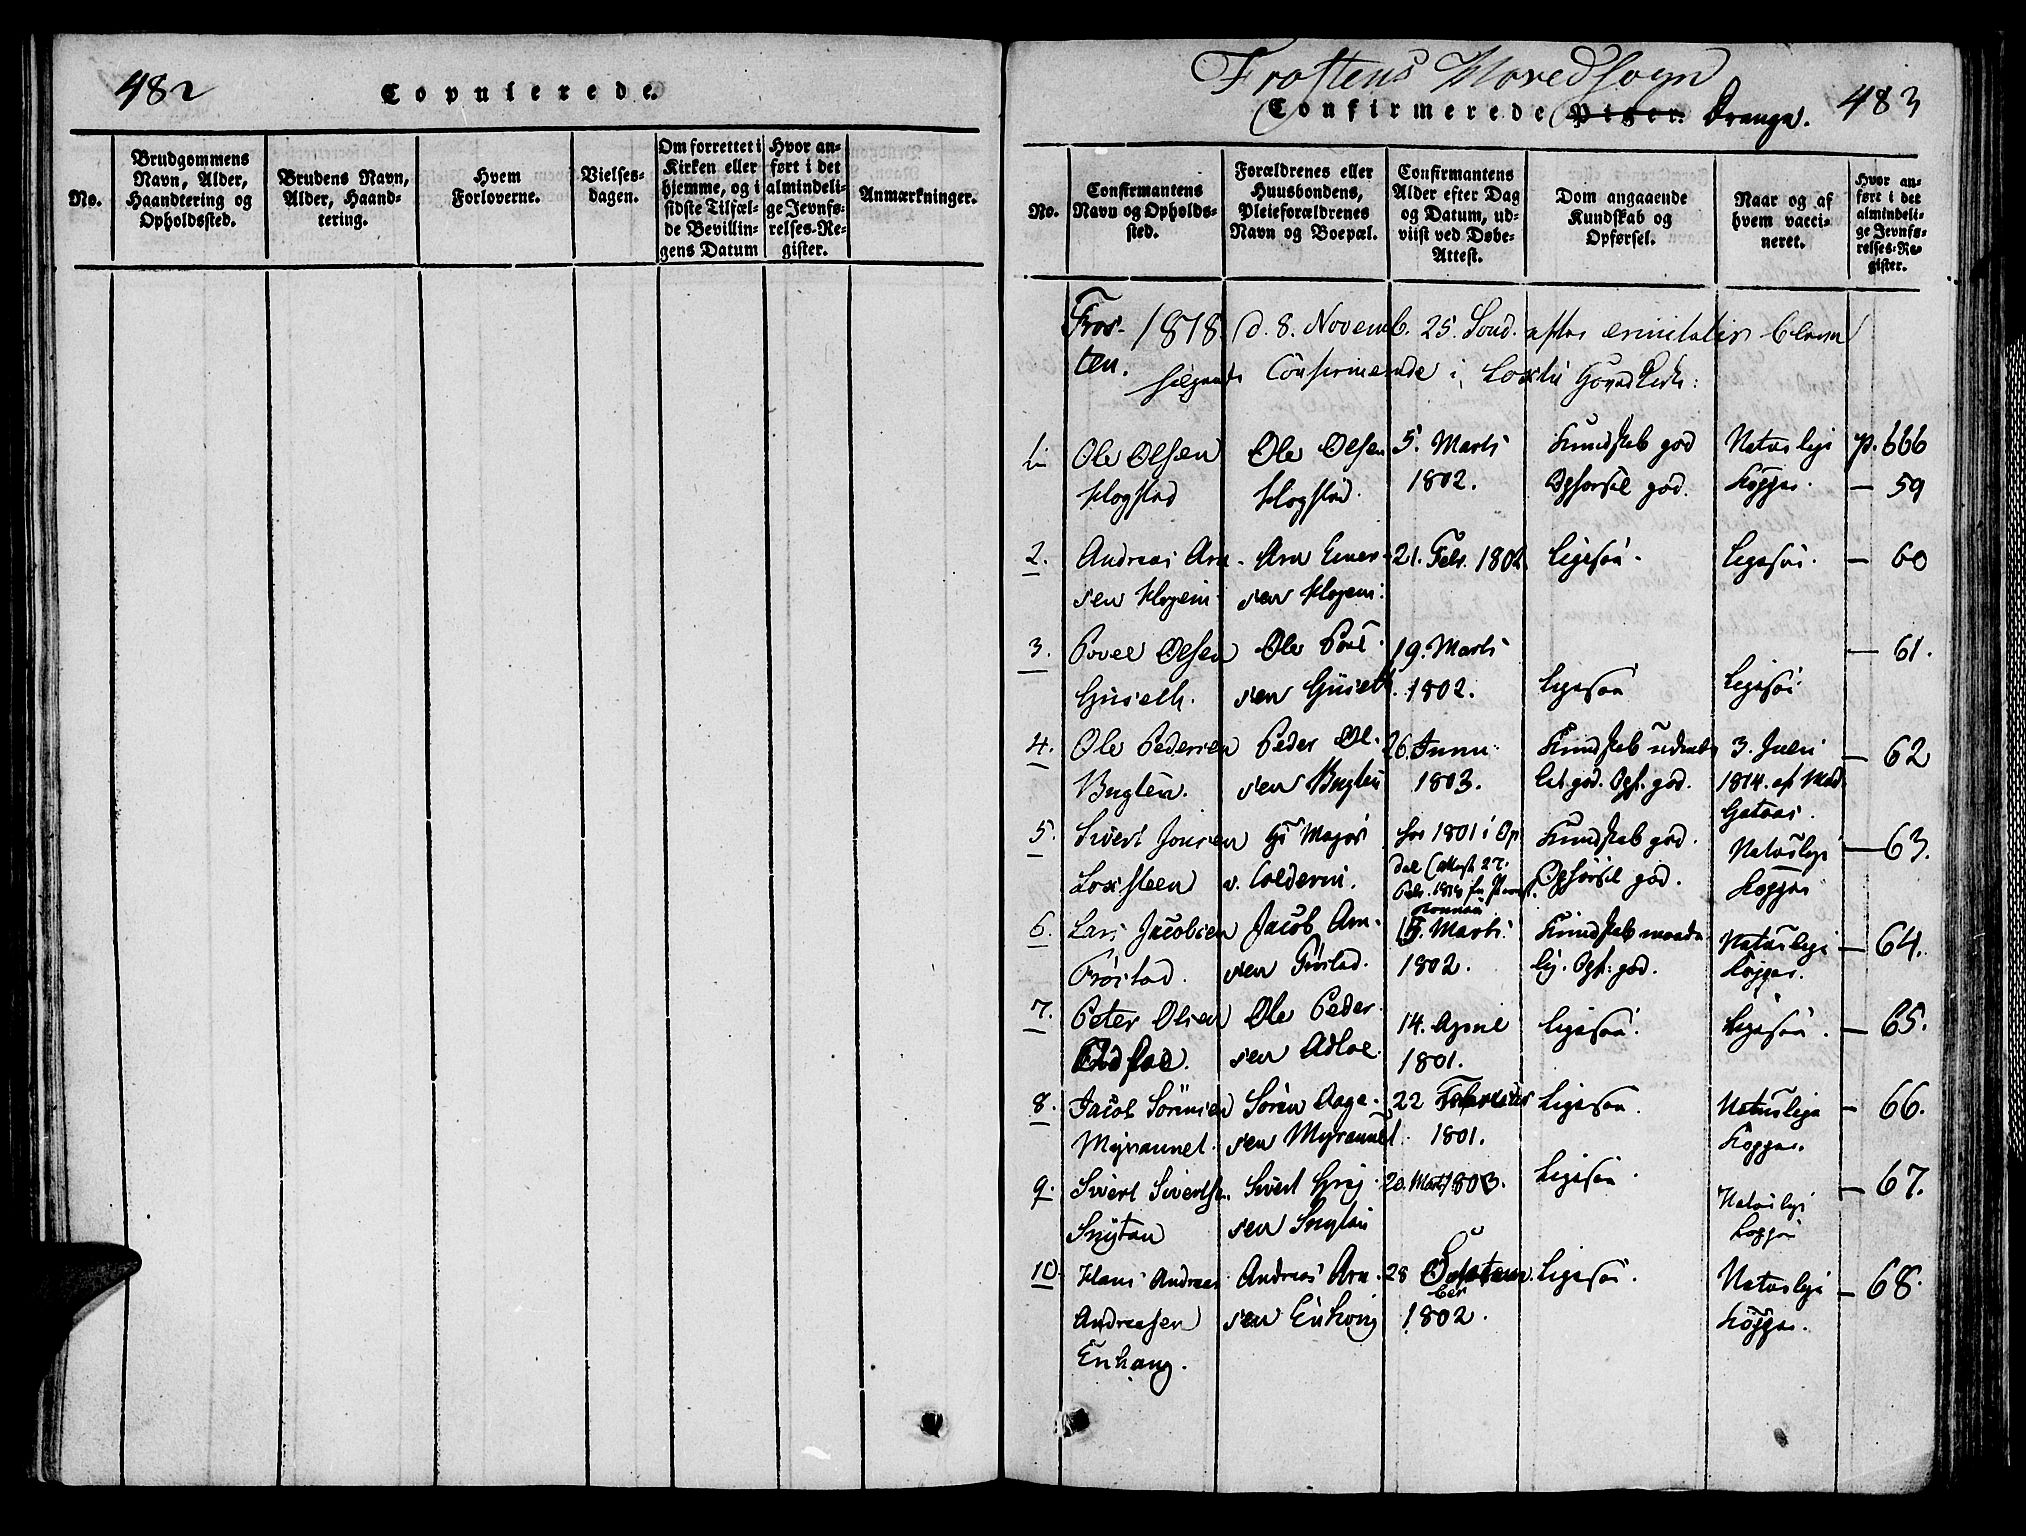 482
Copulerede.
No.
Brudgommens
Navn, Alder,
Haandtering og
Opholdssted.
Brudens Navn,
Alder, Haand-
tering.
Hvem
Forloverne.
Vielses-
dagen.
Om forrettet i
Kirken eller
hjemme, og i
sidste Tilfæl-
de Bevillin-
gens Datum
Hvor an-
ført i det
almindeli-
ge Jevnfø-
relses-Re-
gister.
Anmærkninger.
Frostens Hovedsogn
Confirmerede Piger. Drenge.
483
No.
Confirmantens
Navn og Opholds-
sted.
Forældrenes eller
Huusbondens,
Pleieforældrenes
Navn og Boepæl.
Confirmantens
Alder efter Dag
og Datum, ud-
viist ved Døbe-
Attest.
Dom angaaende
Kundskab og
Opførsel.
Naar og af
hvem vacci-
neret.
Hvor an-
ført i det
almindeli-
ge Jevnfø-
relses-Re-
gister.
Fros-
ten.
1818. d. 8. Novemb. 25. Sønd. efter
1.
Ole Olsen
Hogstad
Ole Olsen
Hogstad.
5. Marts
1802.
Kundskab god
Opførsel god.
Naturlige
Kopper.
p. 666
— 59
2.
Andreas Arn-
sen Hogem
Arn
sen Hogem:
21. Febr. 1802
Ligesaa.
Ligesaa.
— 60
3.
Povel Olsen
Ole Povel-
sen
19. Marts
1802.
Ligesaa
Ligesaa
— 61.
4.
Ole Pedersen
Peder Ol-
sen
26. Janu:
1803.
Kundskab
god. Opf. god.
3. Juli
1814. af
— 62
5.
Sivert Jonsen
Major
1801 i Op
dal
Kundskab god.
Opførsel god.
Naturlige
Kopper
— 63.
6.
Lars Jacobsen
Jacob Arn-
sen
Marts
1802.
Kundskab maade
lig. Opf: god.
Naturlige
Kopper.
— 64.
7.
Peter Olsen
Ole Peder-
sen
14. April
1801.
Ligesaa.
Ligesaa.
— 65.
8.
Jacob Sørensen
Myrannet.
Søren Aage-
sen Myrannet
22 Februar
1801.
Ligesaa.
Naturlige
Kopper.
— 66.
9.
Sivert Sivertsen
Sivert
sen
20. Marts 1803.
Ligesaa.
Naturlige
Kopper
— 67.
10.
Hans Andreas
Andreasen
Andreas Arn-
sen
28 Septem-
ber
1802.
Ligesaa.
Naturlige
Kopper.
— 68.